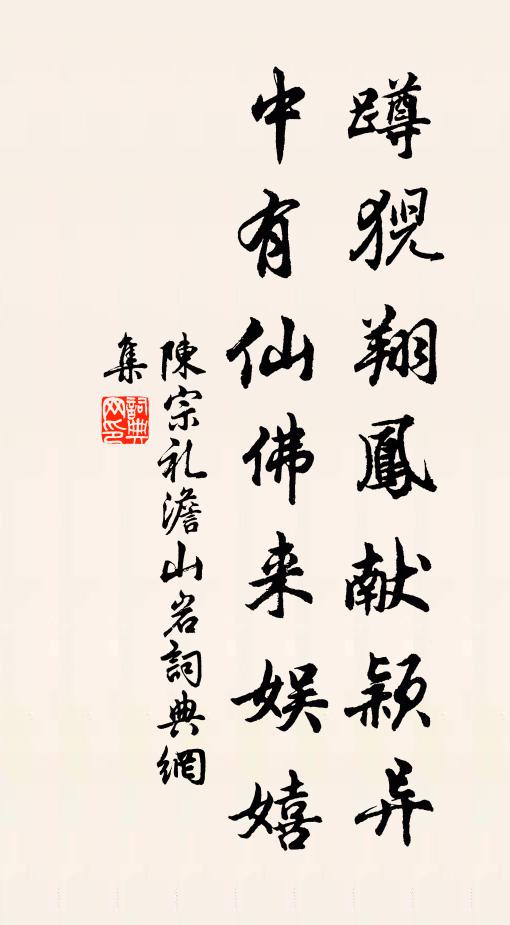 蹲猊翔鳳献颖异
中有仙佛来娱嬉
陳宗礼澹山岩詞典網
集
詞典
网印